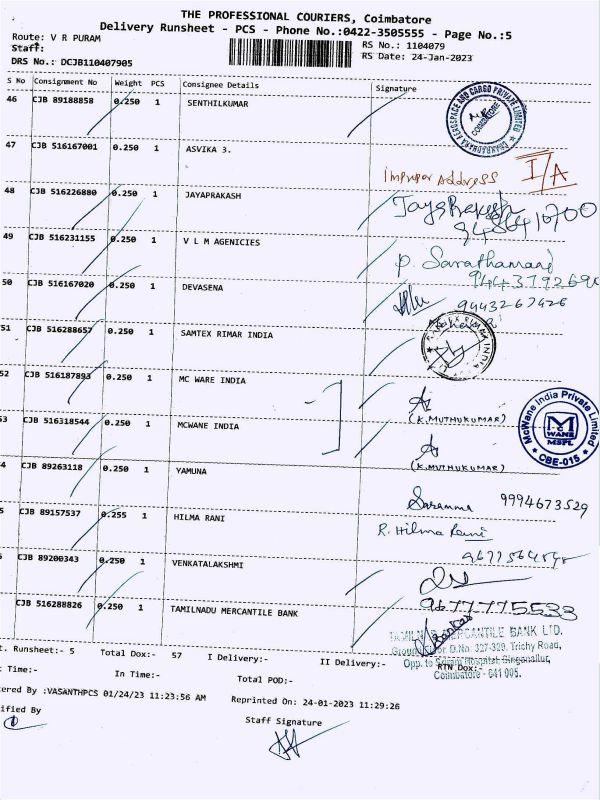 THE PROFESSIONAL COURIERS, Coimbatore
Delivery Runsheet - PCS - Phone No.:0422-3505555 - Page No.:5
Route: V R PURAM
RS No.: 1104079
Staff:
RS Date: 24-Jan-2023
DRS No.: DCJB110407905
S No Consignment No Weight PCS Consignee Details Signature
46 CJB 89188858 0.250 1 SENTHILKUMAR
COIMBATORE
47 CJB 516167001 0.250 1 ASVIKA 3.
Improper Address I/A
48 CJB 516226880 0.250 1 JAYAPRAKASH
49 CJB 516231155 0.250 1 V L M AGENICIES
50 CJB 516167020 0.250 1 DEVASENA
9443267426
51 CJB 516288657 0.250 1 SAMTEX RIMAR INDIA
52 CJB 516187893 0.250 1 MC WARE INDIA
(K.MUTHUKUMAR)
McWane India Private Limited
MC WANE
MSPL
CBE-015
53 CJB 516318544 0.250 1 MCWANE INDIA
(K.MUTHUKUMAR)
4 CJB 89263118 0.250 1 YAMUNA
9994673529
5 CJB 89157537 0.255 1 HILMA RANI
R. Hilma Rani
CJB 89200343 0.250 1 VENKATALAKSHMI
CJB 516288826 0.250 1 TAMILNADU MERCANTILE BANK
9677775533
MERCANTILE BANK LTD.
D.No: 327-329, Trichy Road,
Opp. to Hospital, Singanallur,
Coimbatore - 641 005.
t. Runsheet:- 5 Total Dox:- 57 I Delivery:- II Delivery:- RTN Dox:-
t Time:- In Time:- Total POD:-
tered By :VASANTHPCS 01/24/23 11:23:56 AM Reprinted On: 24-01-2023 11:29:26
ified By
Staff Signature